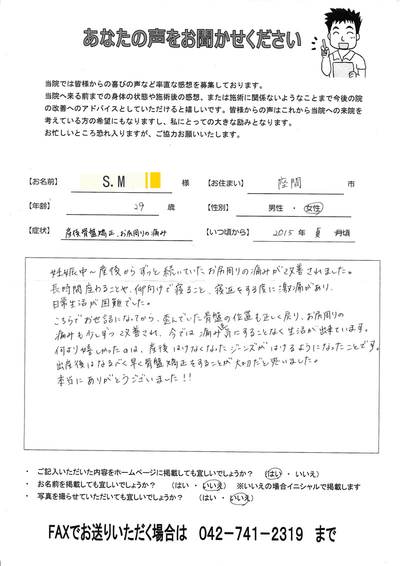 あなたの声をお聞かせください
当院では皆様からの喜びの声など率直な感想を募集しております。
当院へ来る前までの身体の状態や施術後の感想、または施術に関係ないようなことまで今後の院
の改善へのアドバイスとしていただけると嬉しいです。皆様からの声はこれから当院への来院を
考えている方の希望にもなりますし、私にとっての大きな励みとなります。
お忙しいところ恐れ入りますが、ご協力お願いいたします。
【お名前】 S.M 様 【お住まい】 座間 市
【年齢】 29 歳 【性別】 男性 ・ 女性
【症状】 産後骨盤矯正、お尻周りの痛み 【いつ頃から】 2015年 月頃
妊娠中〜産後からずっと続いていたお尻周りの痛みが改善されました。
長時間座ることや、仰向けで寝ること、寝返をする度に激痛があり、
日常生活が困難でした。
こちらでお世話になってから、歪んでいた骨盤の位置も正しく戻り、お尻周りの
痛みも少しずつ改善され、今では痛みを気にすることなく生活が出来ています。
何より嬉しかったのは、産後はけなくなったジーンズがはけるようになったことです。
出産後はなるべく早く骨盤矯正をすることが大切だと思いました。
本当にありがとうございました!!
・ ご記入いただいた内容をホームページに掲載しても宜しいでしょうか? (はい ・ いいえ)
・ お名前を掲載しても宜しいでしょうか? (はい ・ いいえ) ※いいえの場合イニシャルで掲載します
・ 写真を撮らせていただいても宜しいでしょうか? (はい ・ いいえ)
FAXでお送りいただく場合は 042-741-2319 まで